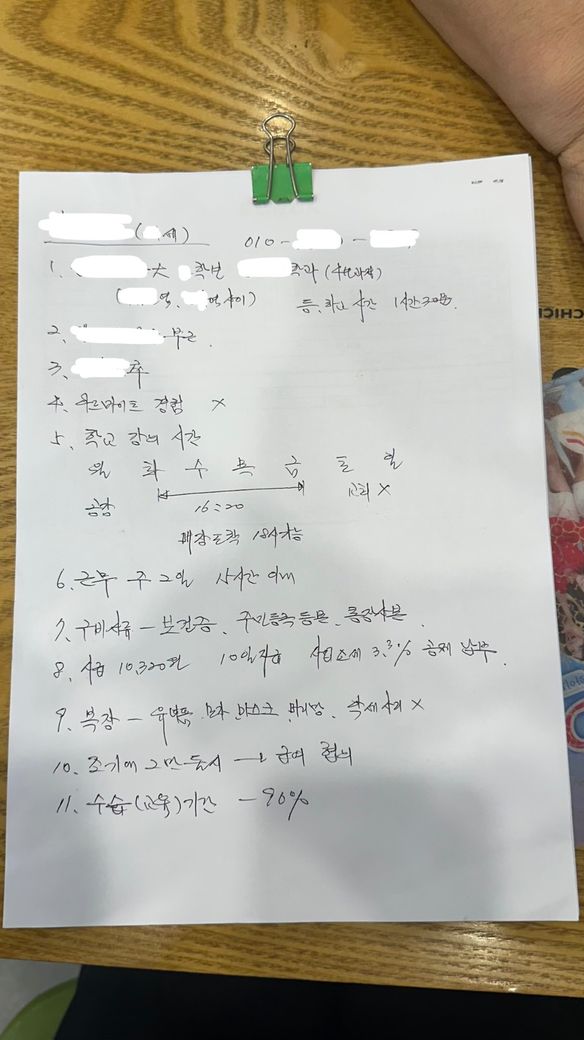 ( 세) 010- -
1. 大 학년 학과 (
( 역, 역 사이) 등, 하교 시간 1시간 30분.
2. 부근.
3. 주
4. 아르바이트 경험 X
5. 학교 강의 시간
월 화 수 목 금 토 일
공강 16:20 교회 X
매장도착 18시 가능
6. 근무 주 2일 4시간 이내
7. 구비서류 - 보건증, 주민등록등본, 통장사본.
8. 시급 10,320원 10일 지급 사업소세 3.3% 공제 납부.
9. 복장 - 유니폼, 모자 마스크 머리망, 악세사리 X
10. 조기에 그만둘시 → 급여 협의
11. 수습(교육)기간 - 90%
CHICK